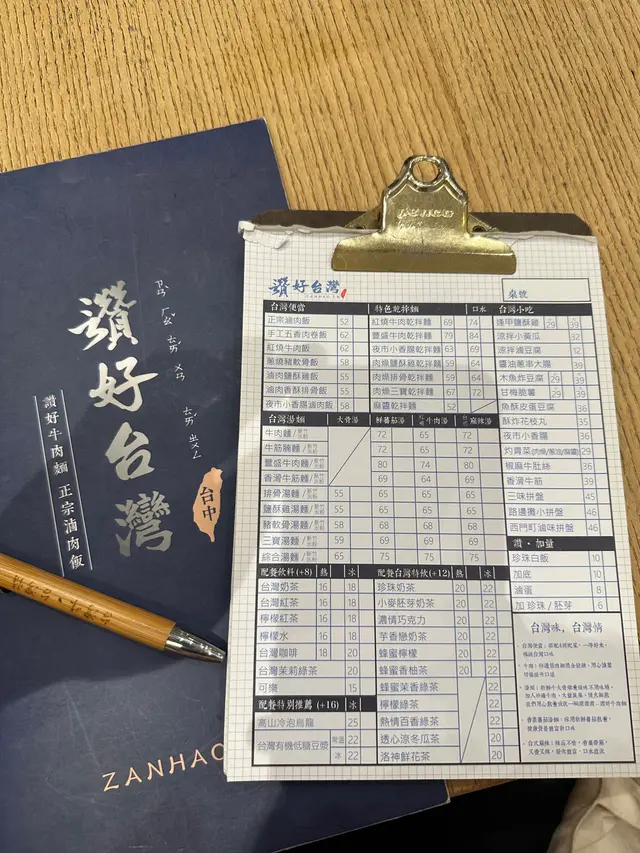 讚好台灣
ㄗㄢˋ ㄏㄠˇ ㄊㄞˊ ㄨㄢ
台中
讚好牛肉麵 正宗滷肉飯
ZANHAO
讚好台灣
桌號
台灣便當
正宗滷肉飯 52
手工五香肉卷飯 62
紅燒牛肉飯 62
蔥燒豬軟骨飯 58
滷肉鹽酥雞飯 55
滷肉香酥排骨飯 55
夜市小香腸滷肉飯 58
特色乾拌麵 口水
紅燒牛肉乾拌麵 69 74
豐盛牛肉乾拌麵 79 84
夜市小香腸乾拌麵 63 69
肉燥鹽酥雞乾拌麵 59 64
肉燥排骨乾拌麵 59 64
肉燥三寶乾拌麵 67 72
麻醬乾拌麵 52
台灣湯麵 大骨湯 鮮蕃茄湯 牛肉湯 台麻辣湯
牛肉麵/ 72 65 72
牛筋腩麵/ 72 65 72
豐盛牛肉麵/ 80 74 80
香滑牛筋麵/ 69 64 69
排骨湯麵/ 55 65 65 65
鹽酥雞湯麵/ 55 65 65 65
豬軟骨湯麵/ 58 68 68 68
三寶湯麵/ 59 69 69 69
綜合湯麵/ 65 75 75 75
配餐飲料(+8) 熱 冰
台灣奶茶 16 18
台灣紅茶 16 18
檸檬紅茶 16 18
檸檬水 16 18
台灣咖啡 18 20
台灣茉莉綠茶 20
可樂 15
配餐特別推薦 (+16) 冰
高山冷泡烏龍 25
台灣有機低糖豆漿 常溫 22
冰 22
配餐台灣特飲(+12) 熱 冰
珍珠奶茶 20 22
小麥胚芽奶茶 20 22
濃情巧克力 20 22
芋香戀奶茶 20 22
蜂蜜檸檬 20 22
蜂蜜香柚茶 20 22
蜂蜜茉香綠茶 22
檸檬綠茶 22
熱情百香綠茶 22
透心涼冬瓜茶 20
洛神鮮花茶 20
台灣小吃
逢甲鹽酥雞 29 39
涼拌小黃瓜 32
涼拌滷豆腐 12
醬油蔥串大腸 39
木魚炸豆腐 29 39
甘梅脆薯 29 39
魚酥皮蛋豆腐 36
酥炸花枝丸 35
夜市小香腸 26
灼膏菜 29
椒麻牛肚絲 36
香滑牛筋 39
三味拼盤 45
路邊攤小拼盤 46
西門町滷味拼盤 46
讚・加量
珍珠白飯 10
加底 10
滷蛋 8
加 珍珠 / 胚芽 6
台灣味，台灣情